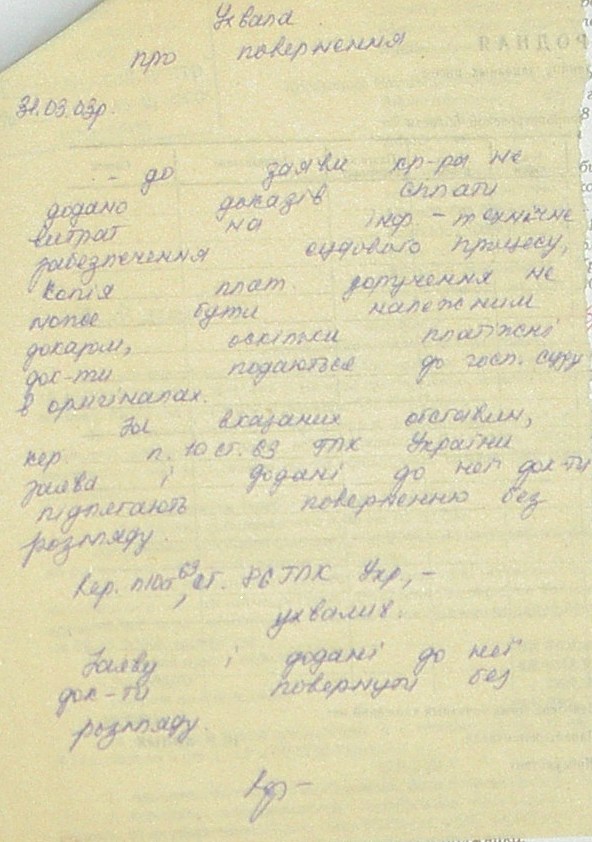 Ухвала
про повернення
31.03.03р.
- до заяви кр-ра не
додано доказів сплати
витрат на інф - технічне
забезпечення судового процесу,
копія плат. доручення не
може бути належним
доказом, оскільки платіжні
док-ти подаються до госп. суду
в оригіналах.
За вказаних обставин,
кер. п. 10 ст. 63 ГПК України
заява і додані до неї док-ти
підлягають поверненню без
розгляду.
Кер. п10 ст 63, ст. 86 ГПК Укр, -
ухвалив:
Заяву і додані до неї
док-ти повернути без
розгляду.
РОДНАЯ